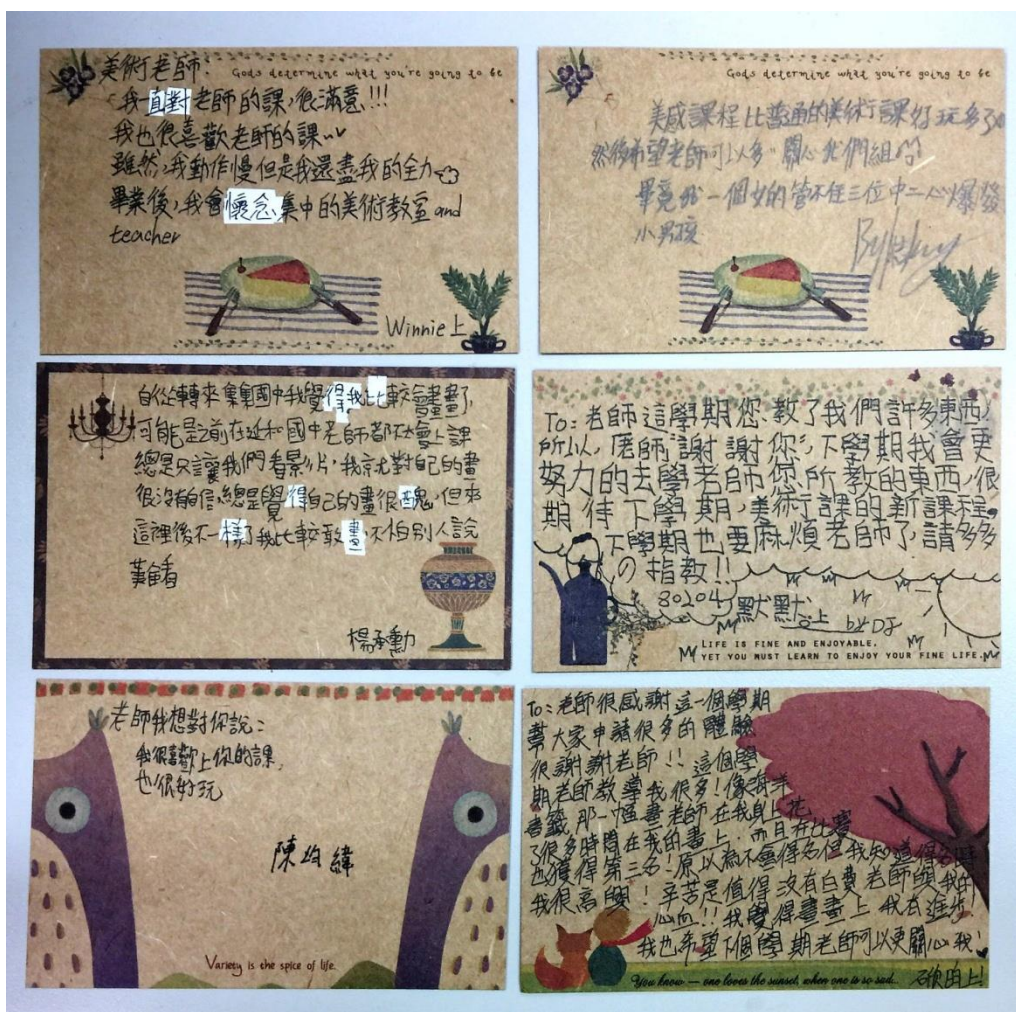 美術老師:
God's determine what you're going to be
我一直對老師的課,很滿意!!!
我也很喜歡老師的課
雖然,我動作慢但是我還盡我的全力
畢業後,我會懷念集中的美術教室and
teacher
Winnie上
God's determine what you're going to be
美感課程比普通的美術課好玩多了
然後希望老師可以多關心我們組的
畢竟我一個女的管不住三位中二心爆發
小男孩
自從轉來集集國中我覺得我比較會畫畫了,
可能是之前在延和國中老師都不太會上課
總是只讓我們看影片,我就對自己的畫
很沒有自信,總是覺得自己的畫很醜,但來
這裡後不一樣了我比較敢畫,不怕別人說
楊承勳
To:老師這學期您教了我們許多東西,
所以,老師謝謝你,下學期我會更
努力的去學老師你所教的東西,很
期待下學期,美術課的新課程。
下學期也要麻煩老師了,請多多
の指教!!
80204 默默上
by DJ
LIFE IS FINE AND ENJOYABLE,
YET YOU MUST LEARN TO ENJOY YOUR FINE LIFE.
老師我想對你說:
我很喜歡上你的課,
也很好玩
陳均緯
Variety is the spice of life.
To:老師很感謝這一個學期
幫大家申請很多的體驗
很謝謝老師!!這個學
期老師教導我很多!像海洋
書籤那一幅畫老師在我身上花
了很多時間在我的畫上.而且在比賽
也獲得第三名!原以為不會得名但我知道得名時
我很高興!辛苦是值得沒有白費老師與我的
心血!!我覺得畫畫上我有進步!
我也希望下個學期老師可以更關心我!
You know — one loves the sunset, when one is so sad...